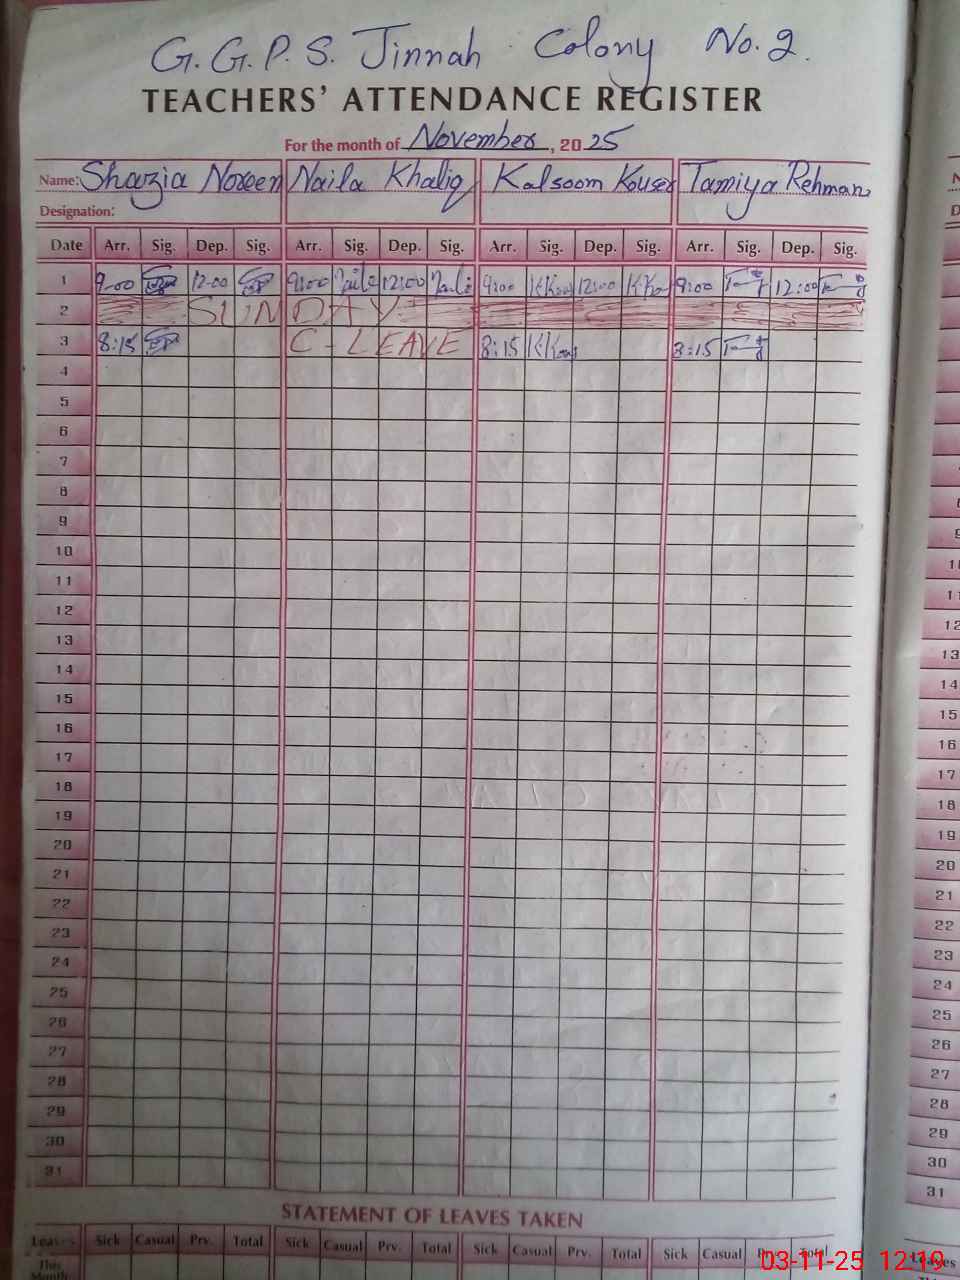 G.G.P.S. Jinnah Colony No. 2.
TEACHERS' ATTENDANCE REGISTER
For the month of November, 2025
Name: Shazia Noreen Naila Khaliq Kalsoom Kouser Tamiya Rehman
Designation:
Date Arr. Sig. Dep. Sig. Arr. Sig. Dep. Sig. Arr. Sig. Dep. Sig. Arr. Sig. Dep. Sig.
1 9-00 12-00 9:00 Naila 12:00 Naila 9:00 12:00 9:00 12:00
2 SUNDAY
3 8:15 C-LEAVE 8:15 8:15
4
5
6
7
8
9
10
11
12
13
14
15
16
17
18
19
20
21
22
23
24
25
26
27
28
29
30
31
STATEMENT OF LEAVES TAKEN
Leaves Sick Casual Prv. Total Sick Casual Prv. Total Sick Casual Prv. Total Sick Casual Total
This
Month
03-11-25 12:19
10
11
12
13
14
15
16
17
18
19
20
21
22
23
24
25
26
27
28
29
30
31
Leaves